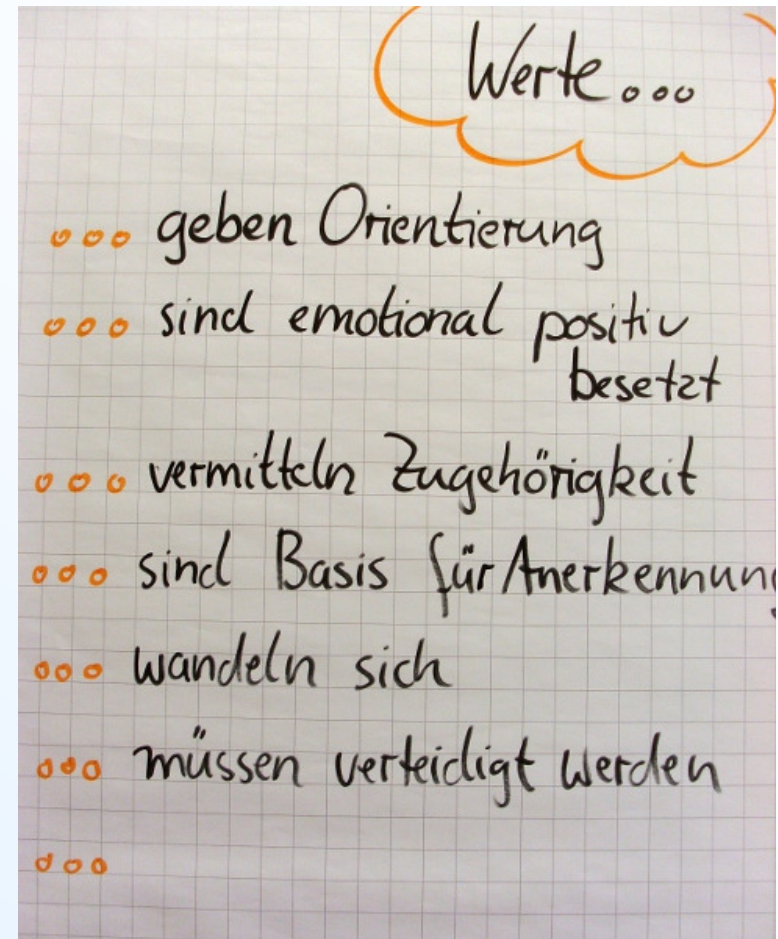 Werte...
... geben Orientierung
... sind emotional positiv
besetzt
... vermitteln Zugehörigkeit
... sind Basis für Anerkennung
... wandeln sich
... müssen verteidigt werden
...